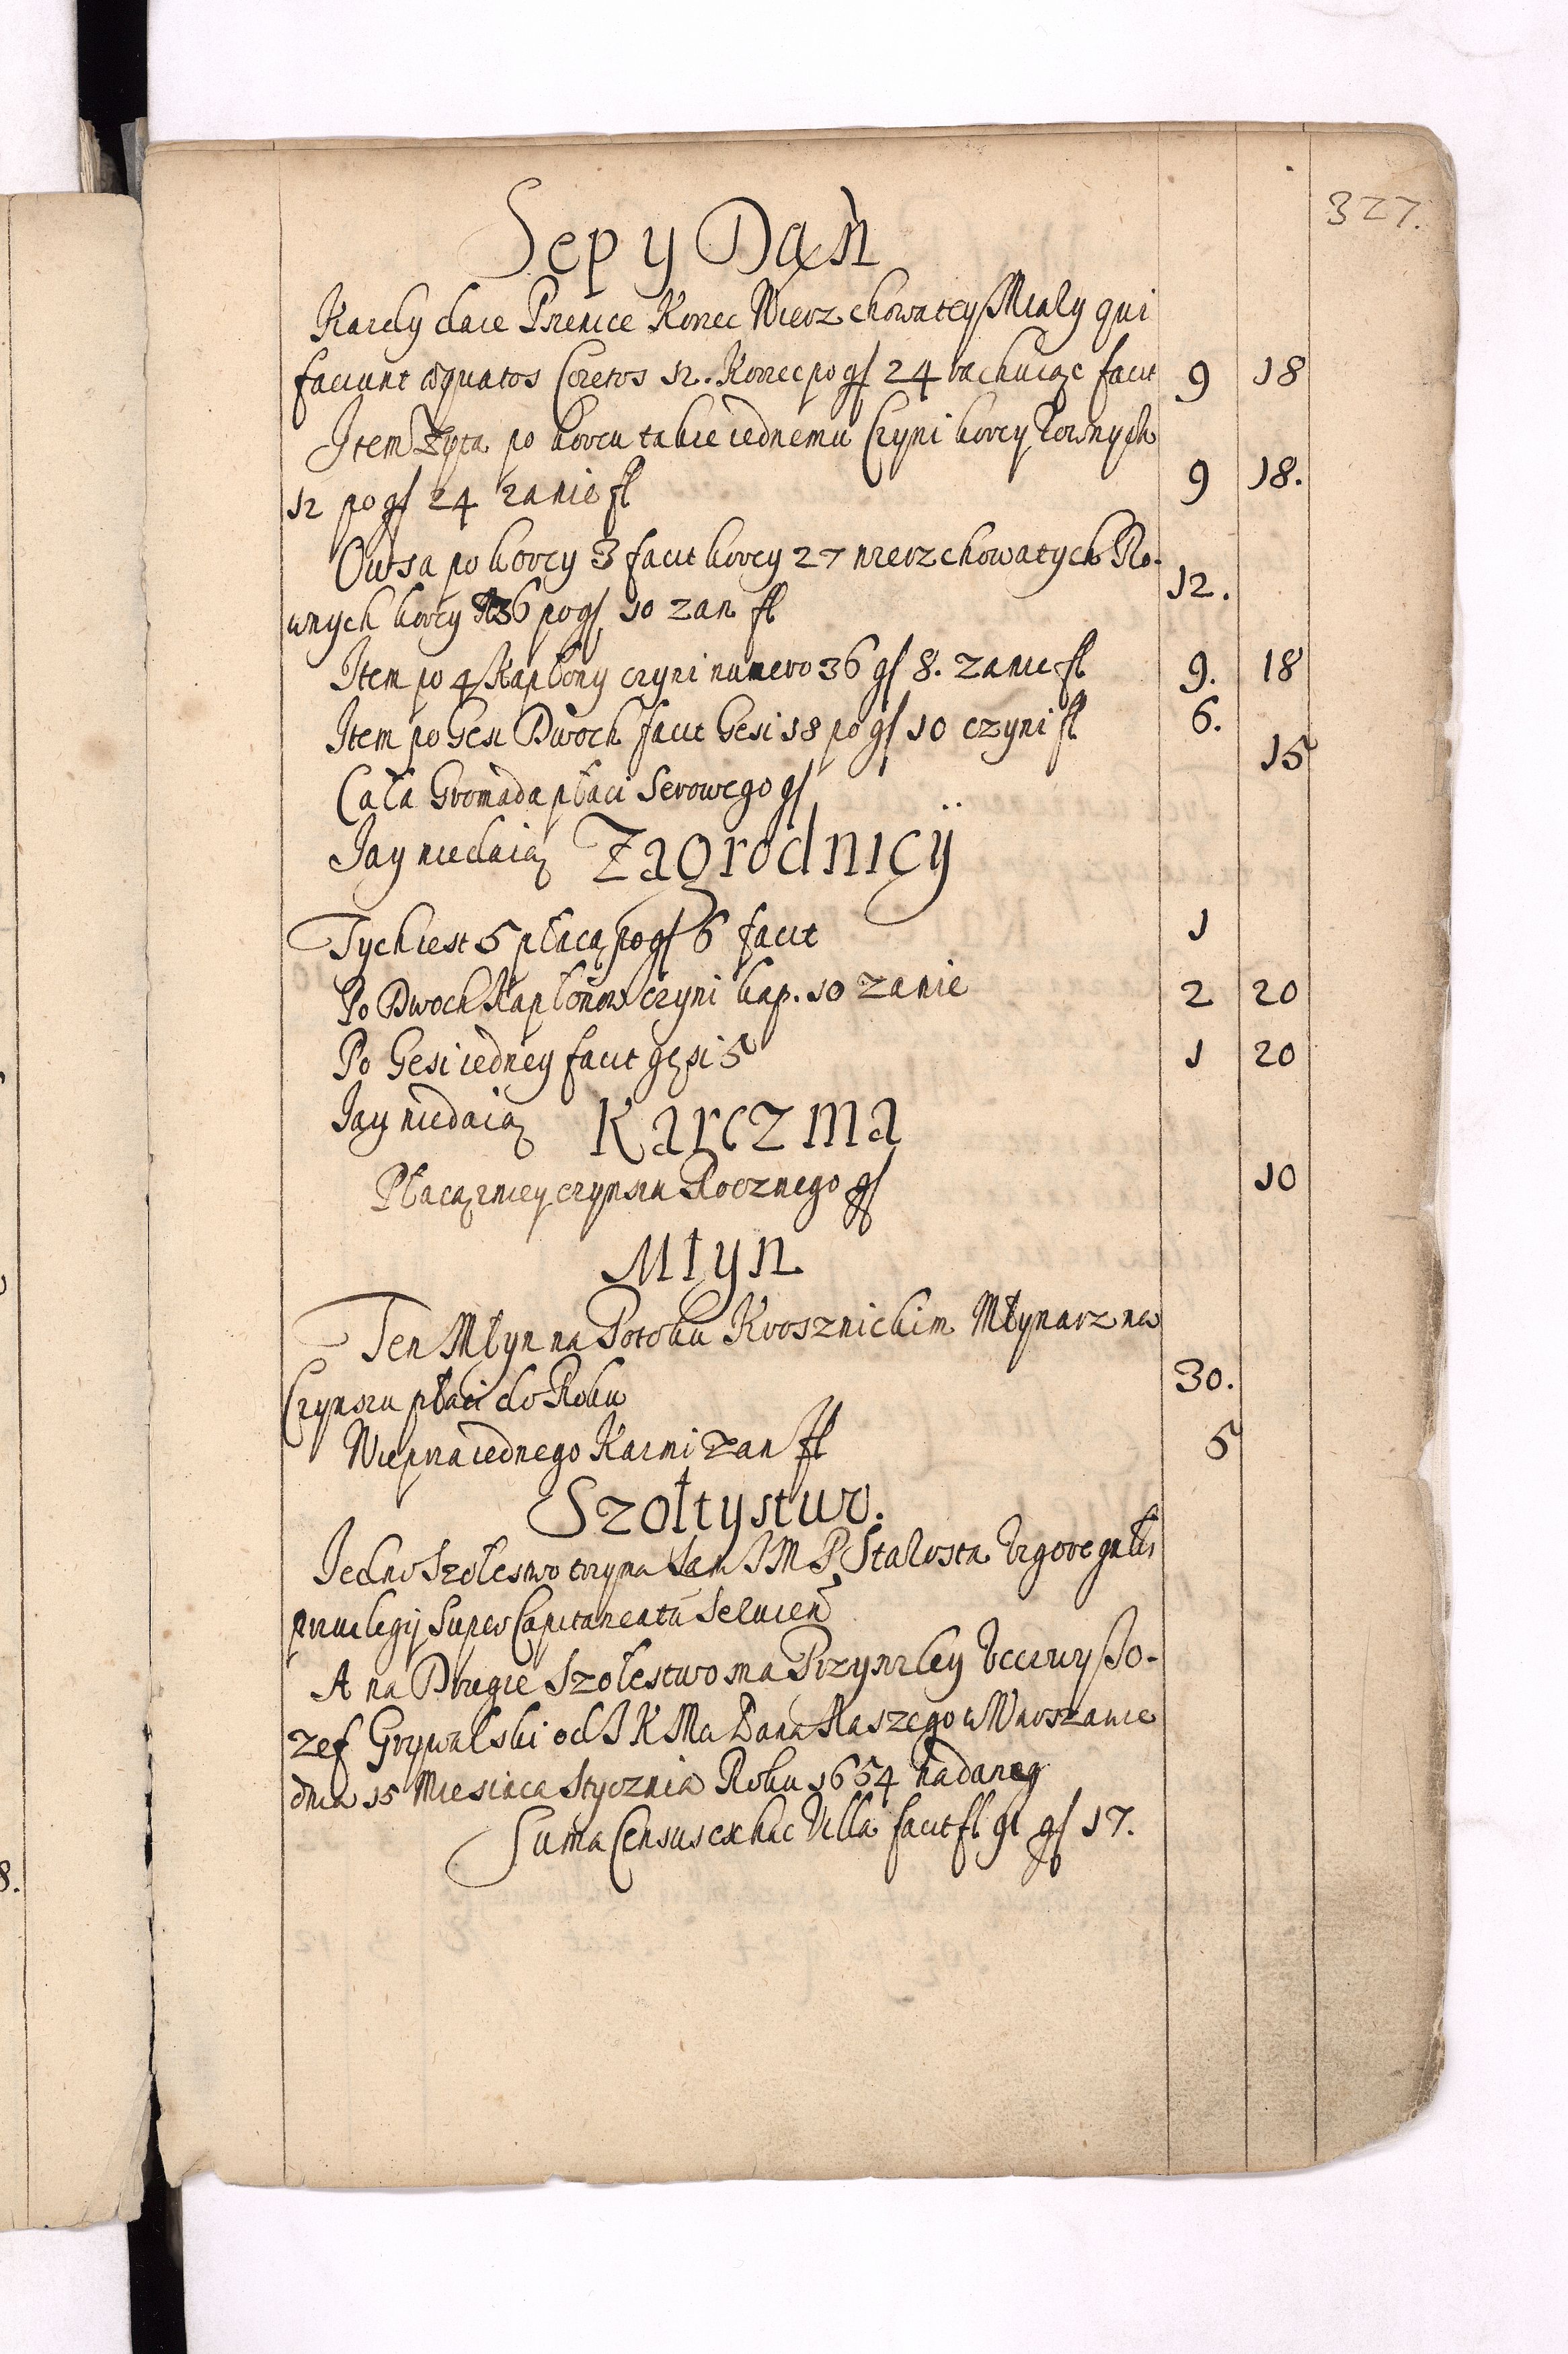 327.
Sep y Dań
Kazdy daie Pszenice Korzec Wierzchowatey Miały qui
faciunt æquatos Coretos 12. Korzec po gſ 24 rachuiąc facit 9 18
Item Zyta po korcu takze iednemu Czyni korcy Rownych
12 po gſ 24 zanie fl 9 18.
Owsa po korcy 3 facit korcy 27 wierzchowatych Ro-
wnych korcy 36 po gſ 10 zan fl 12.
Item po 4 Kapłony czyni numero 36 gſ 8. zanie fl 9. 18
Item po Gesi Dwoch facit Gesi 18 po gſ 10 czyni fl 6.
Cała Gromada płaci Serowego gſ 15
Jay niedaią Zagrodnicÿ
Tych iest 5 płacą po gſ 6 facit 1
Po Dwoch Kapłonow czyni kap. 10 zanie 2 20
Po Gesi iedney facit gęsi 5 1 20
Jay niedaią Karczma
Płacą zniey czynszu Rocznego gſ 10
Młyn
Ten Młyn na Potoku Krosznickim Młynarz na
Czynszu płaci do Roku 30.
Wieprza iednego Karmi zan fl 5
Szołtystwo.
Jedno Szołestwo trzyma Sam J M P Starosta Vigore
priuilegij Super Capitaneatu
A na Drugie Szołestwo ma Przywiley Vcciwy Jo-
zef Grywalski od J K Ma Pana Naszego w Warszawie
dnia 15 Miesiaca Stycznia Roku 1654 nadaneg
Suma Census ex hac Villa facit fl 91 gſ 17.
8.